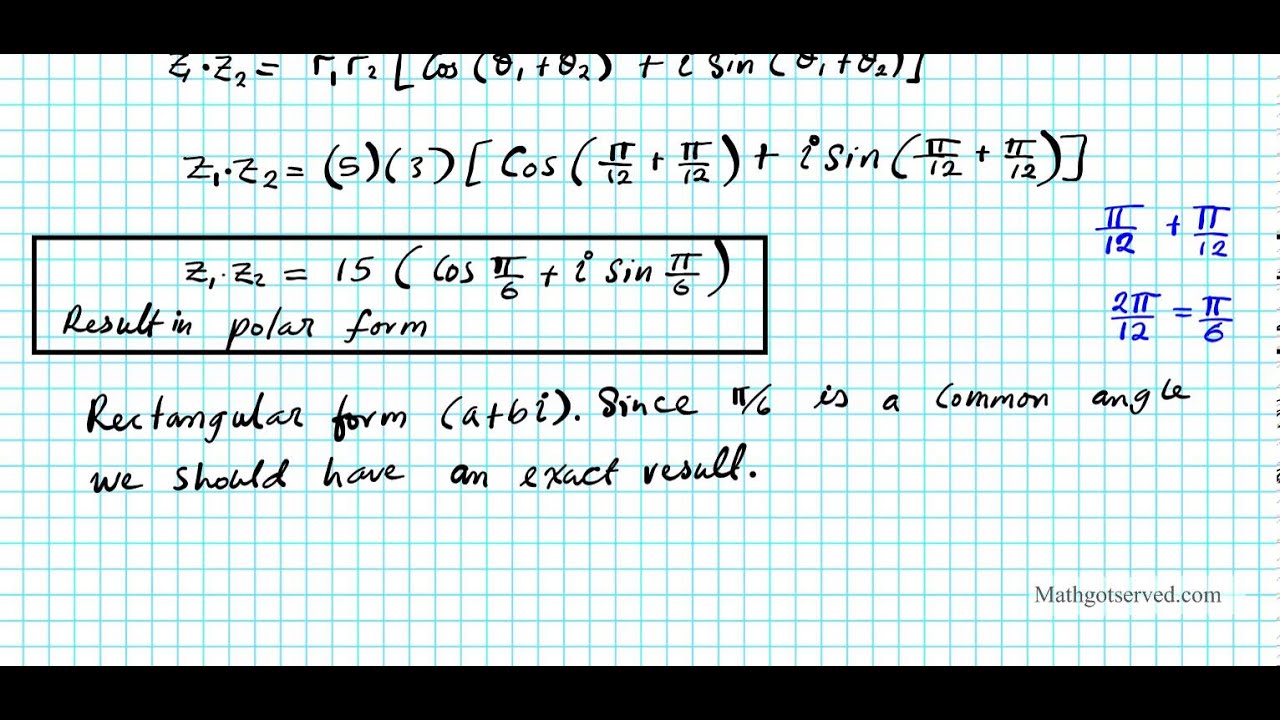 z₁·z₂ = r₁r₂[Cos(θ₁+θ₂) + i sin(θ₁+θ₂)]
z₁·z₂ = (5)(3)[Cos(π/12 + π/12) + i sin(π/12 + π/12)]
π/12 + π/12
z₁·z₂ = 15 (Cos π/6 + i sin π/6)
2π/12 = π/6
Result in polar form
Rectangular form (a+bi). Since π/6 is a common angle
we should have an exact result.
Mathgotserved.com